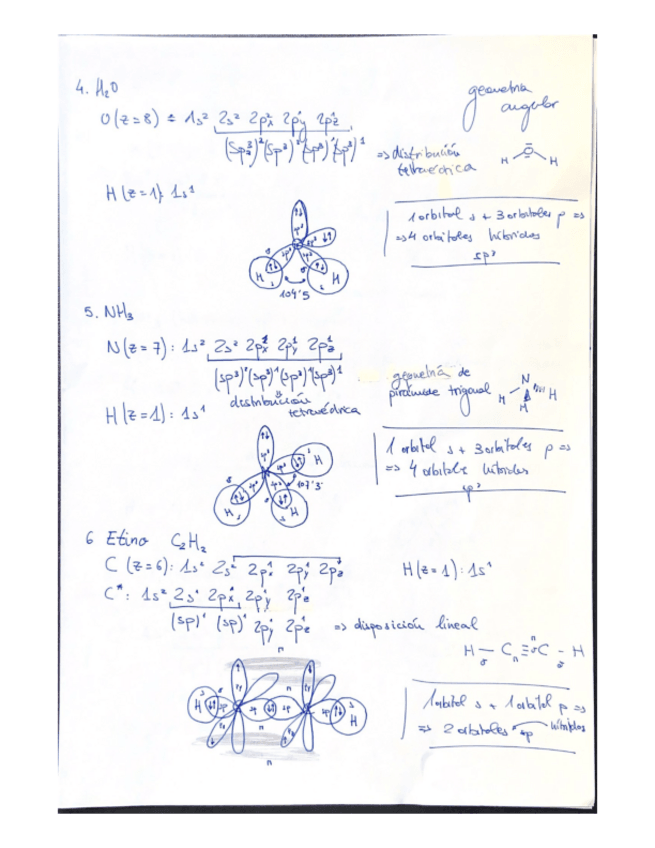 4. H₂O
geometria angular
O(z=8) = 1s² 2s² 2px² 2py¹ 2pz¹
(sp³)² (sp³)² (sp³)¹ (sp³)¹ => distribución tetraédrica
H O H
H (z=1): 1s¹
1 orbital s + 3 orbitales p =>
=> 4 orbitales híbridos
sp³
H H
104'5
5. NH₃
N(z=7): 1s² 2s² 2px¹ 2py¹ 2pz¹
(sp³)² (sp³)¹ (sp³)¹ (sp³)¹
geometría de pirámide trigonal
N H H H
distribución tetraédrica
H(z=1): 1s¹
1 orbital s + 3 orbitales p =>
=> 4 orbitales híbridos
sp³
H H H
107'3
6 Etino C₂H₂
C (z=6): 1s² 2s² 2px¹ 2py¹ 2pz
H(z=1): 1s¹
C*: 1s² 2s¹ 2px¹ 2py¹ 2pz¹
(sp)¹ (sp)¹ 2py¹ 2pz¹ => disposición lineal
H - C ≡ C - H
1 orbital s + 1 orbital p =>
=> 2 orbitales sp híbridos
H sp sp sp sp H